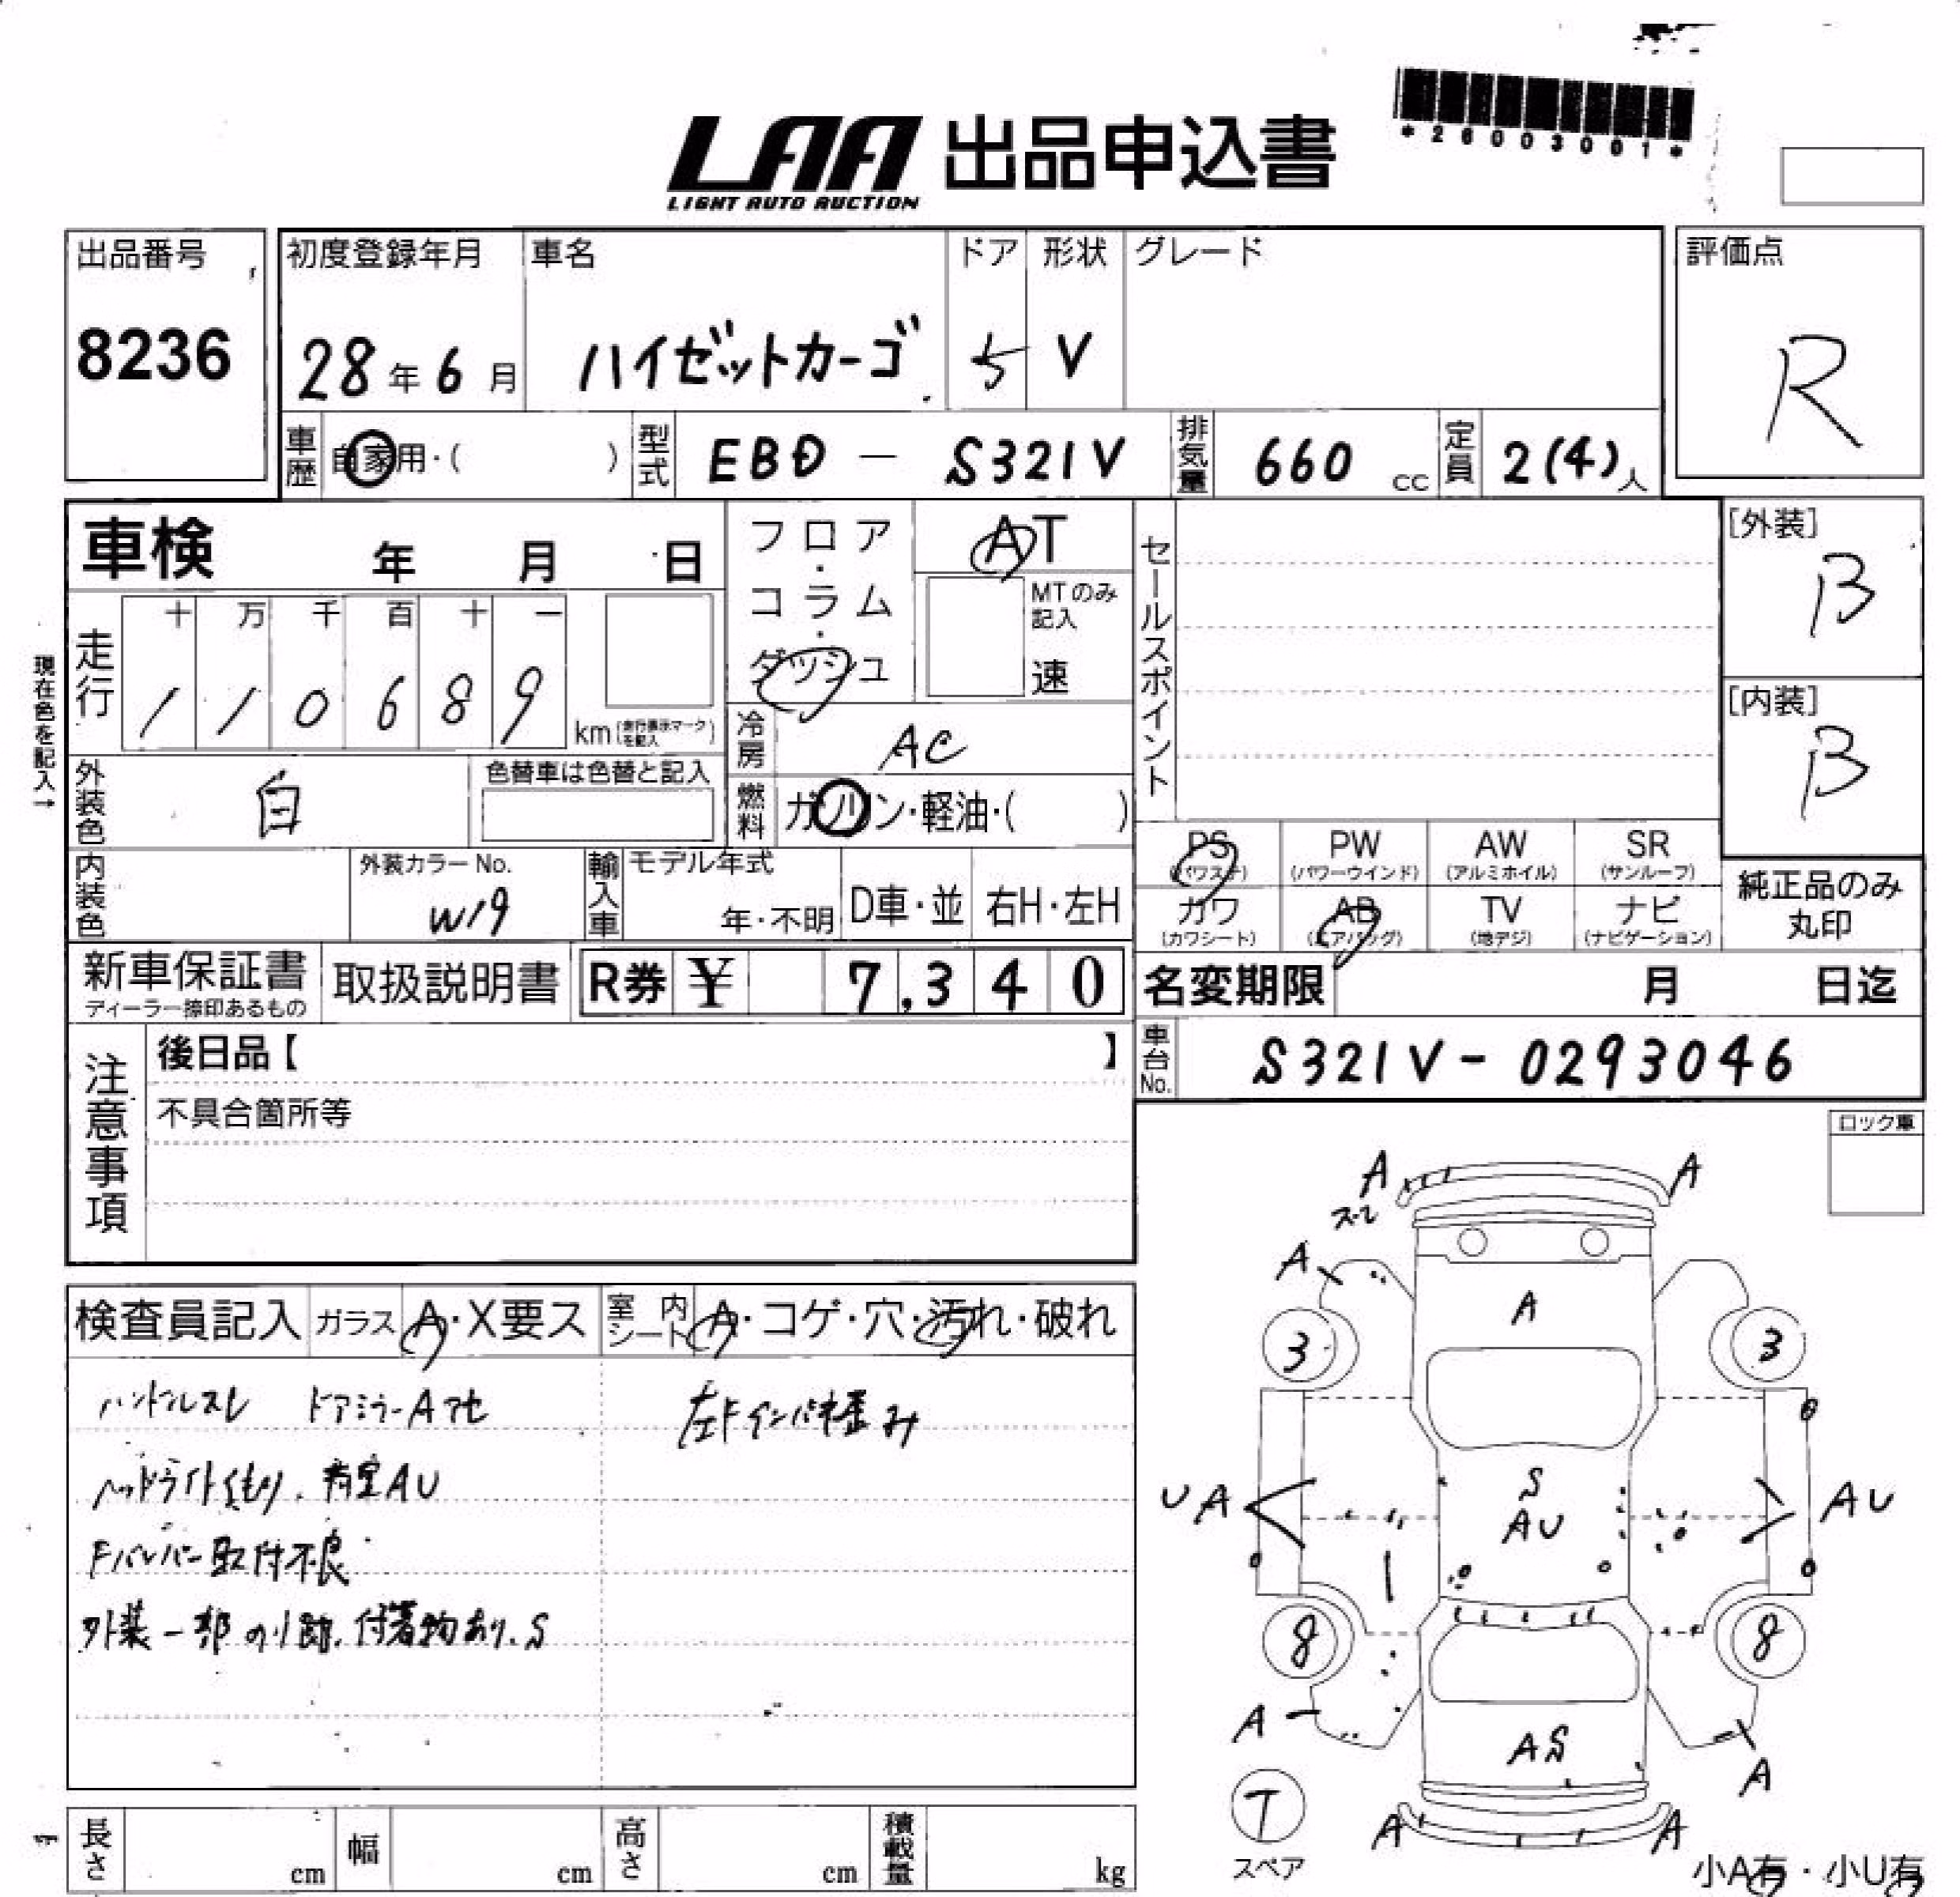 *26003001*
LAA 出品申込書
LIGHT AUTO AUCTION
出品番号 初度登録年月 車名 ドア 形状 グレード 評価点
8236 28年6月 ハイゼットカーゴ 5 V R
車歴 自家用・( ) 型式 EBD - S321V 排気量 660 cc 定員 2(4)人
車検 年 月 日 フロア・コラム・ダッシュ AT
MTのみ記入 速
セールスポイント
[外装] B
[内装] B
現在色を記入→
走行 十 万 千 百 十 一
1 1 0 6 8 9 km(走行表示マークを記入)
冷房 AC
外装色 白 色替車は色替と記入
燃料 ガソリン・軽油・( )
PS (パワステ) PW (パワーウインド) AW (アルミホイル) SR (サンルーフ)
カワ (カワシート) AB (エアバッグ) TV (地デジ) ナビ (ナビゲーション)
純正品のみ丸印
内装色 外装カラーNo. W19 輸入車 モデル年式 年・不明 D車・並 右H・左H
新車保証書 ディーラー捺印あるもの 取扱説明書 R券 ¥ 7,340 名変期限 月 日迄
車台No. S321V-0293046
注意事項 後日品【 】
不具合箇所等
ロック車
検査員記入 ガラス A・X要ス 室内シート A・コゲ・穴・汚れ・破れ
ハンドルスレ ドアミラーAアセ 左Fインパネ歪み
ヘッドライトくもり. 荷室AU
Fバンパー取付不良
外装一部のり跡. 付着物あり. S
A A
スレ
A
A
3 3
S
UA AU AU
8 8
A AS A
T
スペア
A A
小A有・小U有
長さ cm 幅 cm 高さ cm 積載量 kg